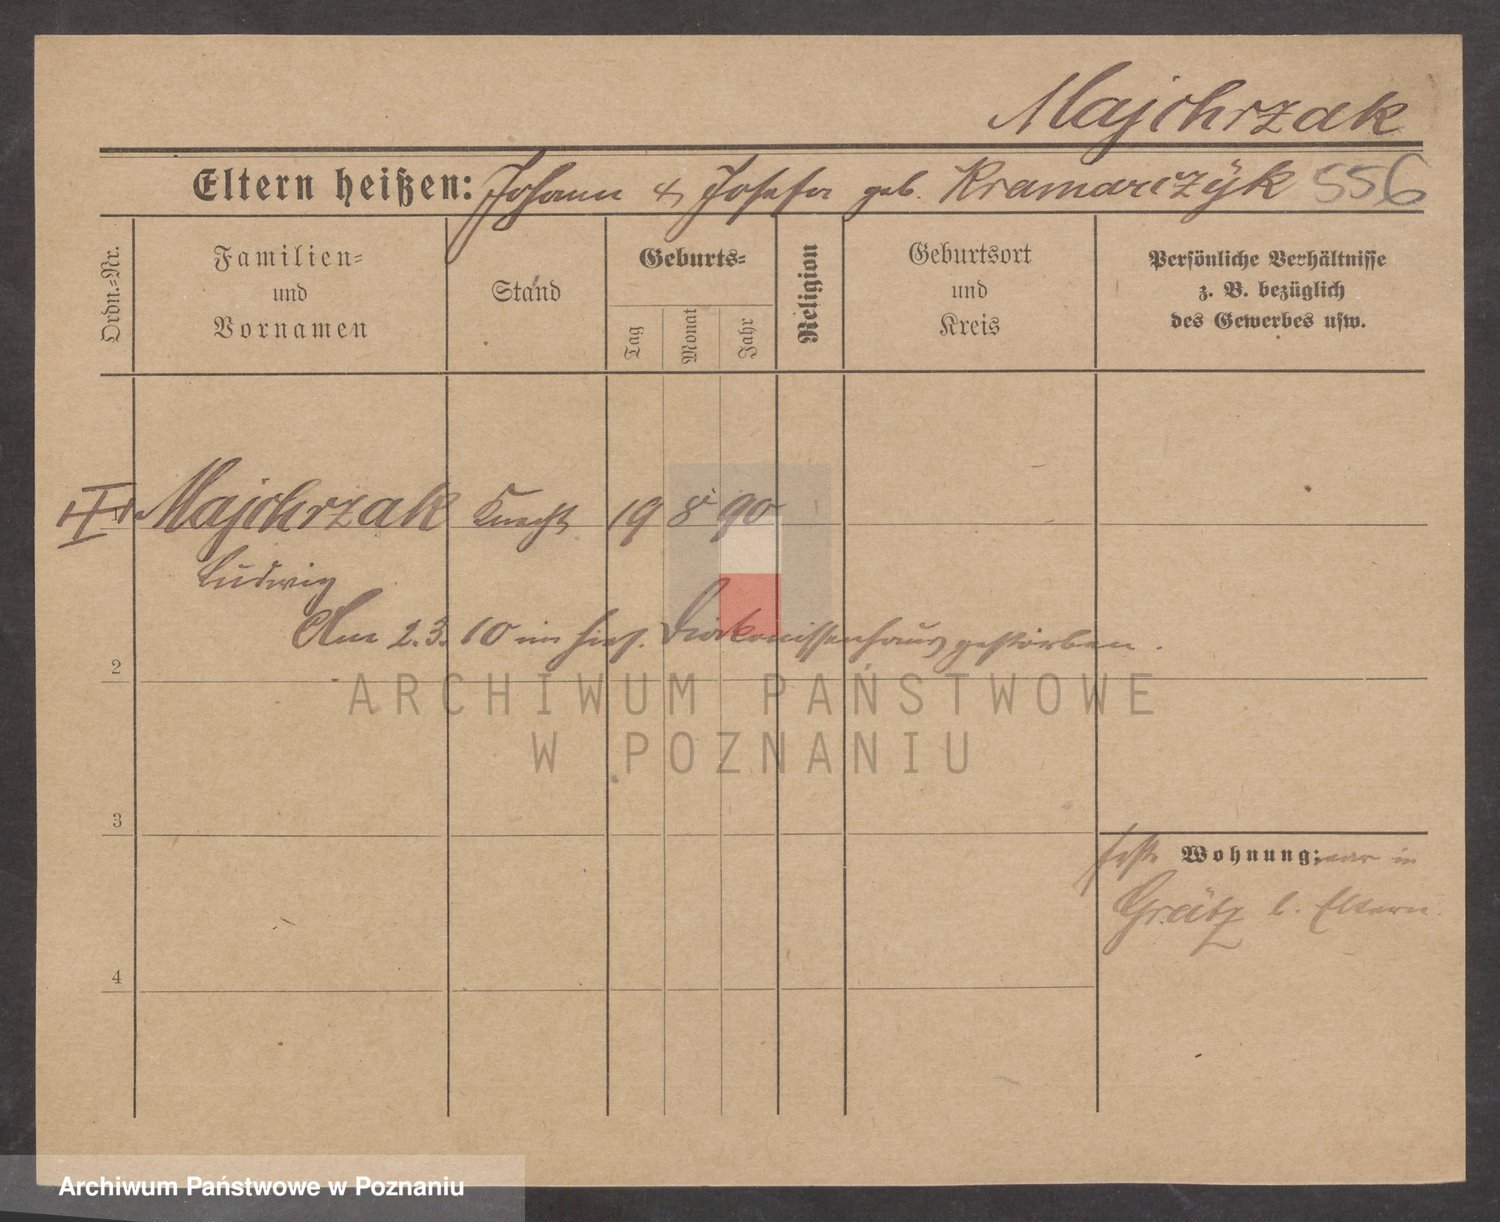 Majchrzak
Eltern heißen: Johann & Josefa geb. Kramarczÿk 556
Ordn.-Nr.
Familien-
und
Vornamen
Stand
Geburts-
Tag
Monat
Jahr
Religion
Geburtsort
und
Kreis
Persönliche Verhältnisse
z. B. bezüglich
des Gewerbes usw.
Majchrzak Knecht 19 8 90
Ludwig
Am 2.3.10 im hies. Diakonissenhaus gestorben.
2
ARCHIWUM PAŃSTWOWE
W POZNANIU
3
feste Wohnung: war in
Grätz b. Eltern.
4
Archiwum Państwowe w Poznaniu